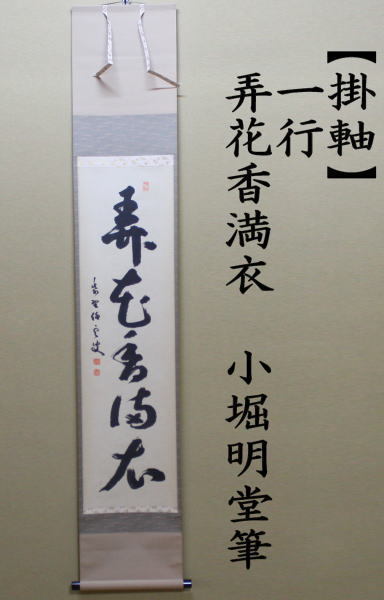 【掛軸】
一行
弄花香満衣 小堀明堂筆
弄花香満衣